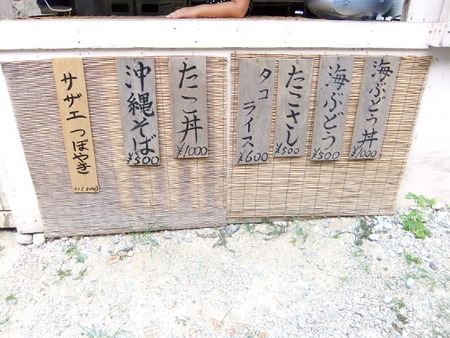 海ぶどう丼
¥1000
海ぶどう
¥500
たこさし
¥500
タコライス
¥600
たこ丼
¥1000
沖縄そば
¥500
サザエつぼやき